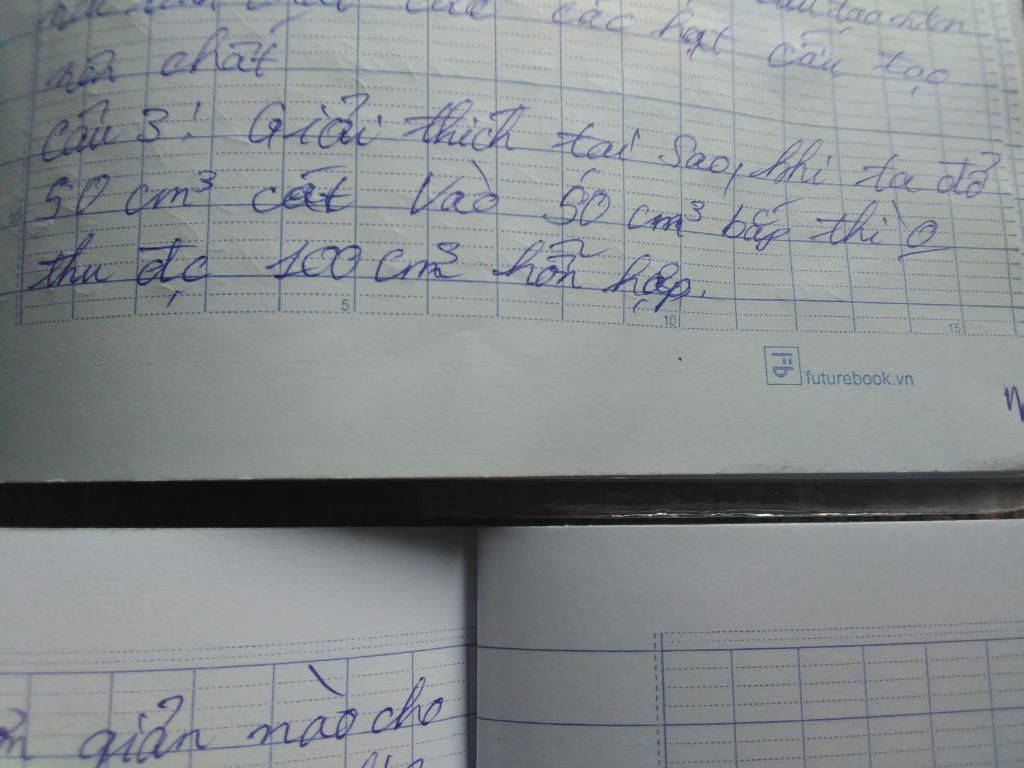 của các hạt cấu tạo
nên chất
Câu 3: Giải thích tại sao, khi ta đổ
50 cm³ cát vào 50 cm³ bắp thì o
thu đc 100 cm³ hỗn hợp.
5 10 15
futurebook.vn
giản nào cho